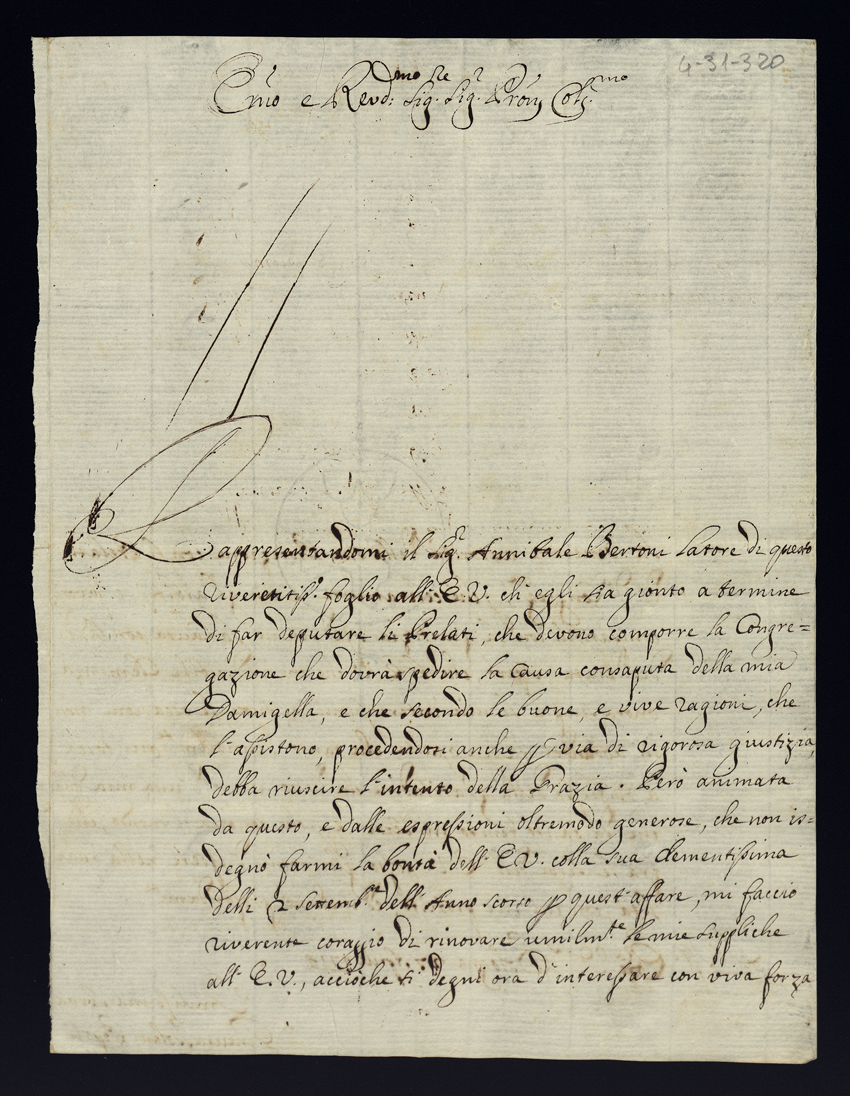 4-31-320
Em̃o e Revd.mo Sig.re Sig.r Prõn Col.mo
Rappresentandomi il Sig.r Annibale Bertoni latore di questo
riveretitiss.o foglio all' E.V. ch' egli sia gionto a termine
di far deputare li Prelati, che devono comporre la Congre=
gazione che dovrà spedire la Causa consaputa della mia
Damigella, e che secondo le buone, e vive ragioni, che
l'assistono, procedendosi anche p via di rigorosa giustizia,
debba riuscire l'intento della Grazia. Però animata
da questo, e dalle espressioni oltremodo generose, che non is=
degnò farmi la bontà dell' E.V. colla sua clementissima
delli 2 Settemb.e dell' Anno scorso p quest'affare, mi faccio
riverente coraggio di rinovare umilm.te le mie suppliche
all' E.V., acciòche si degni ora d'interessare con viva forza